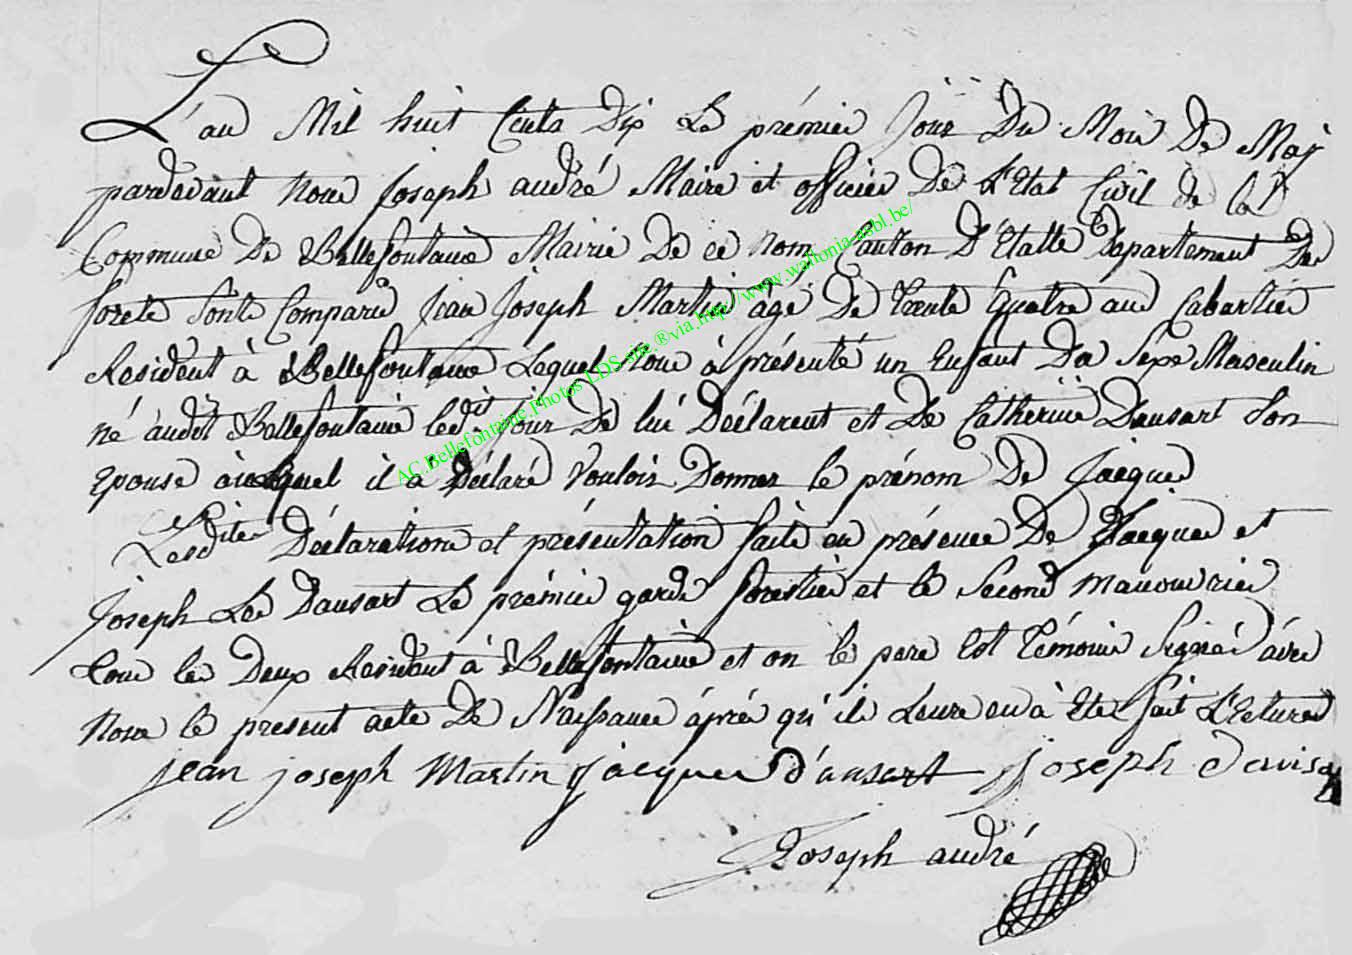 L'an Mil huit Cents Dix Le prémier Jour Du Mois De May
pardevant Nous Joseph andré Maire et officier De L'Etat Civil de la
Commune De Bellefontaine Mairie De ce Nom Canton D'Etalle Departement Des
forets Sont Comparu Jean Joseph Martin âgé De Trente Quatre ans Cabartier
Résident à Bellefontaine Lequel Nous à présenté un Enfant Du Sexe Masculin
né audit Bellefontaine ledit jour De lui Déclarent et De Catherine Dansart Son
Epouse auquel il a Déclaré Vouloir Donner le prénom De Jacques
Lesdites Déclarations et présentation faite en présence De Jacques et
Joseph Les Dansart Le prémier garde forestier et le Second Manouvrier
tous les Deux Résident à Bellefontaine et on le pere Est Témoins Signés avec
Nous le présent acte De Naissance après qu'ils Leurs en à Eté fait L'eture
jean joseph Martin jacques d'ansart joseph
Joseph andré
AC.Bellefontaine.Photos LDS-site.®via.http://www.wallonia-asbl.be/